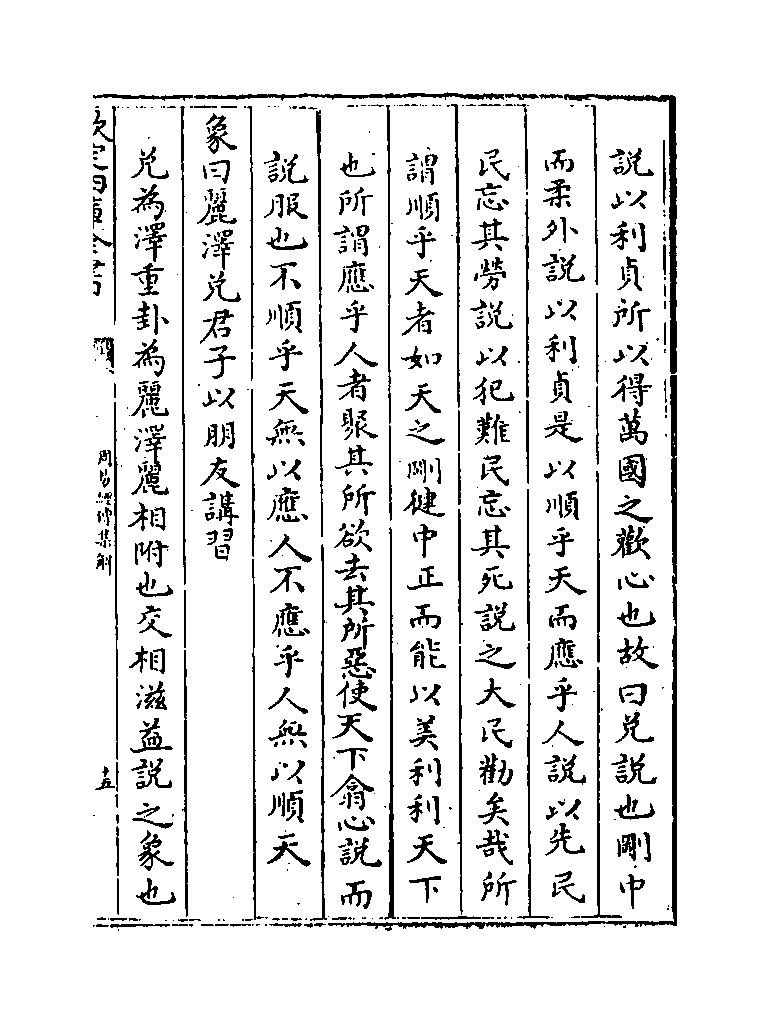 説以利貞所以得萬國之歡心也故曰兑説也剛中
而柔外説以利貞是以順乎天而應乎人説以先民
民忘其勞説以犯難民忘其死説之大民勸矣哉所
謂順乎天者如天之剛健中正而能以美利利天下
也所謂應乎人者聚其所欲去其所惡使天下翕心説而
説服也不順乎天無以應人不應乎人無以順天
象曰麗澤兑君子以朋友講習
兑為澤重卦為麗澤麗相附也交相滋益説之象也
欽定四庫全書
周易經傳集解
十五